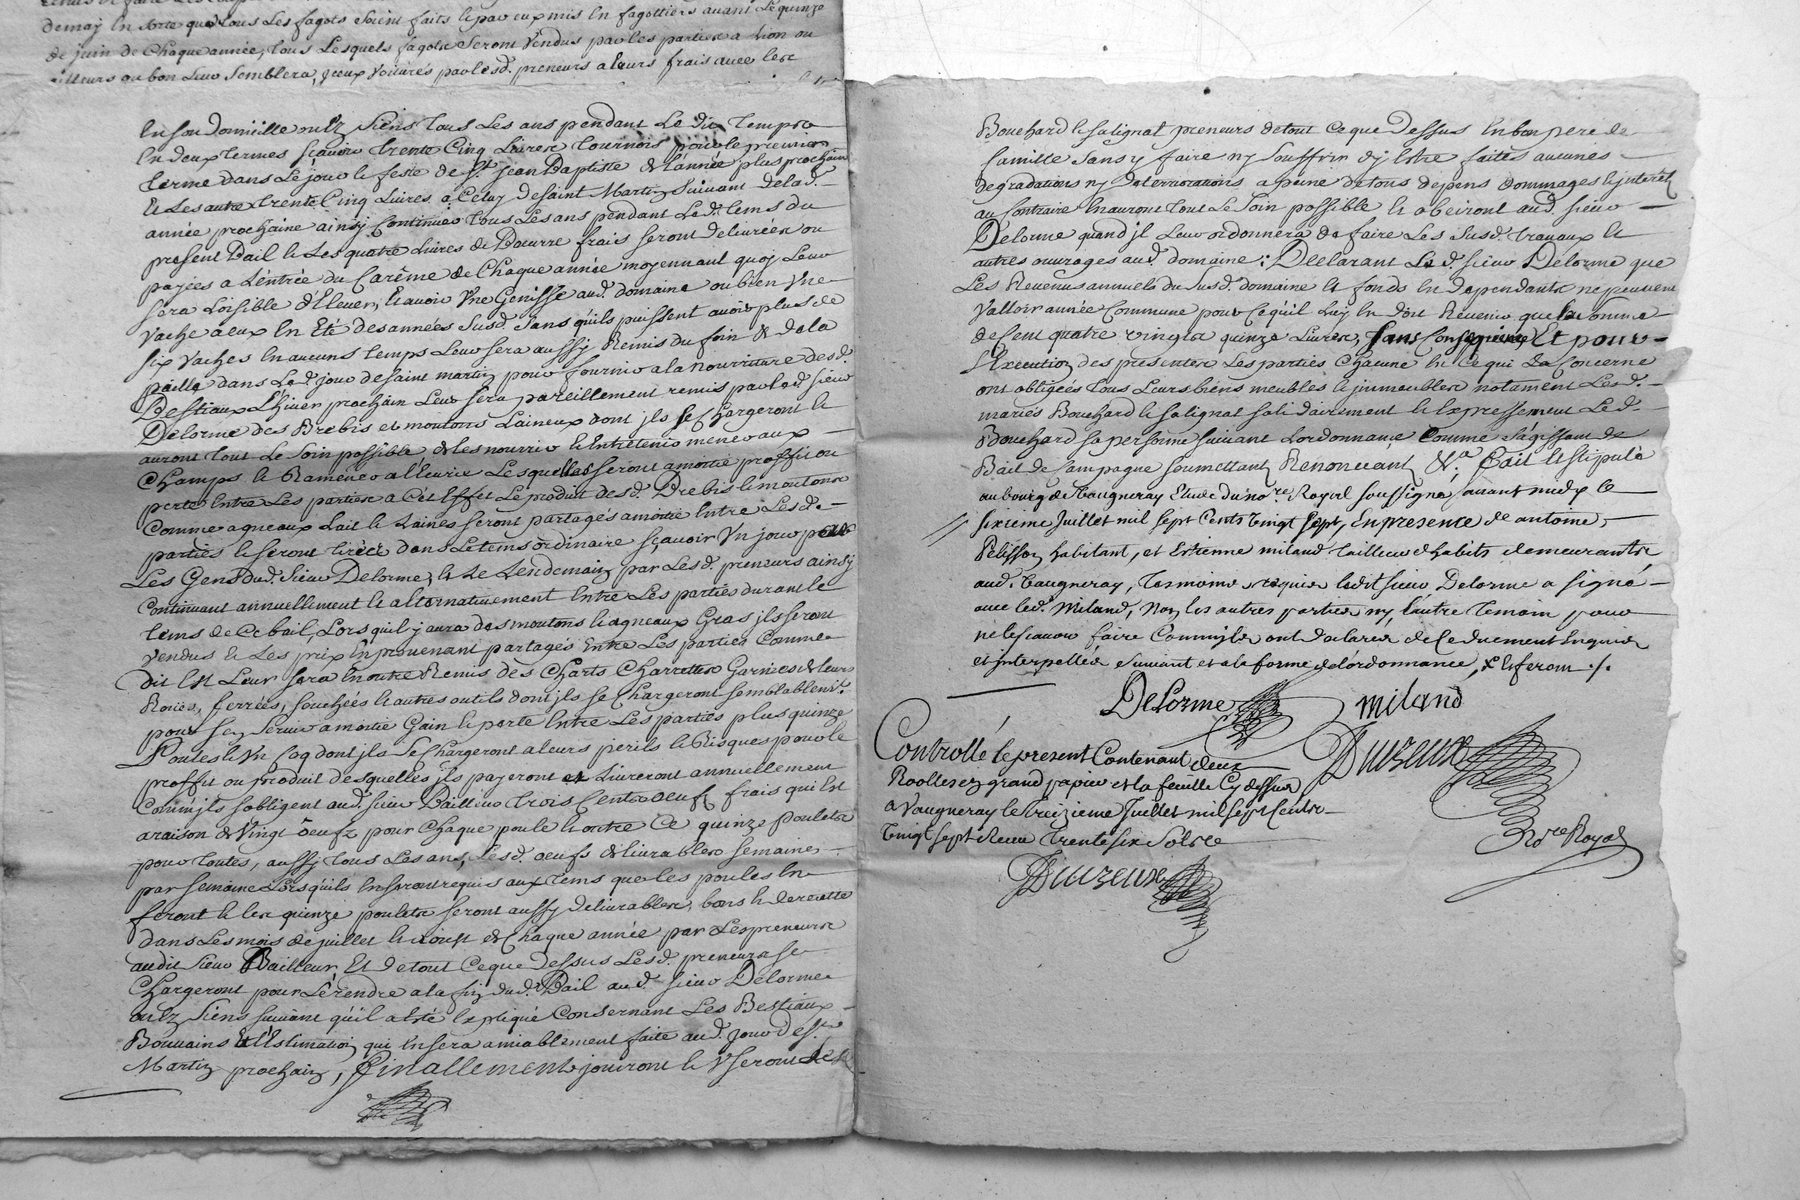 demay En sorte que tous Les fagots soient faits et par eux mis En fagottiers avant Le quinze
de juin de Chaque année, tous Lesquels fagots Seront Vendus par les parties a Lion ou
ailleurs ou bon Leur Semblera, iceux Voiturés par lesd. preneurs a leurs frais avec les
En son Domicille ou lz Siens tous Les ans pendant Le dit temps
En deux termes sçavoir trente Cinq Livres tournois pour le premier
terme dans Le jour et feste de St. Jean Baptiste de l'année plus prochain
Et Les autre trente Cinq Livres a Celuy de Saint Martin Suivant de lad.
année prochaine ainsy Continuer tous Les ans pendant Led. tems du
present Bail et Les quatre Livres de Beurre frais seront delivrées ou
payées a L'entrée du Carême de Chaque année moyennant quoy Leur
sera Loisible d'Elever, et avoir Une Genisse aud. domaine ou bien Une
Vache a eux En Eté des années Susd. Sans qu'ils puissent avoir plus de
six Vaches En aucuns temps Leur sera aussy Remis du foin & de la
paille dans Led. jour de saint martin pour fournir a la nourriture desd.
Bestiaux L'hiver prochain Leur sera pareillement remis par led. sieur
Delorme des Brebis et moutons Laineux dont ils se Chargeront et
auront tout Le Soin possible de les nourrir et Entretenir mener aux
Champs et Ramener a l'Ecurie Lesquelles seront a moitié proffit ou
perte Entre Les parties a Cet Effet Le produit desd. Brebis et moutons
Comme agneaux Lait et Laines seront partagés a moitié Entre Lesd.
parties et seront tirées dans Le tems ordinaire sçavoir Un jour par
Les Gens dud. Sieur Delorme, et Le Lendemain par Lesd. preneurs ainsy
Continuant annuellement et alternativement Entre Les parties durant Le
tems de Ce bail, Lors qu'il y aura des moutons et agneaux Gras ils seront
Vendus & Les prix En provenant partagés Entre Les parties Comme
dit Est Leur sera En outre Remis des Charts Charrettes Garnies de leurs
Roües, ferrées, souchées et autres outils dont ils se Chargeront semblablemt.
pour s'en Servir a moitié Gain et perte Entre Les parties plus quinze
Poules et Un Coq dont ils Se Chargeront a leurs perils et Risques pour le
proffit ou produit desquelles ils payeront et Livreront annuellement
Comm'ils s'obligent aud. sieur Bailleur trois Cents Oeufs frais qui Est
a raison de Vingt oeufs pour Chaque poule et outre Ce quinze poulets
pour toutes, aussy tous Les ans, Lesd. oeufs delivrables semaines
par Semaine Lorsqu'ils En seront requis aux tems que les poules En
feront et les quinze poulets seront aussy delivrables, bons et de recette
dans Les mois de juillet et Aoust de Chaque année par Les preneurs
audit Sieur Bailleur, Et de tout Ce que dessus Lesd. preneurs se
Chargeront pour Le rendre a la fin dud. Bail aud. sieur Delorme
ou lz Siens suivant qu'il a Esté Expliqué Concernant Les Bestiaux
Bouvains & L'Estimation qui En sera amiablement faite aud. jour de St.
Martin prochain, Finallement jouiront et Useront Led.
Bouchard et Salignat preneurs de tout Ce que Dessus En bon pere de
famille Sans y faire ny Souffrir qu'y Estre faites aucunes
degradations ny Deteriorations a peine de tous depens dommages et interets
au Contraire En auront tout Le Soin possible et obeiront aud. sieur
Delorme quand il Leur ordonnera de faire Les Susd. travaux et
autres ouvrages aud. domaine; Declarant Led. sieur Delorme que
Les Revenus annuels du Susd. domaine et fonds En dependants ne peuvent
Valloir année Commune pour Ce qu'il Luy En doit Revenir que la somme
de Cent quatre Vingts quinze Livres, Sans Consequence Et pour
L'Execution des presentes Les parties Chacune En Ce qui La Concerne
ont obligées tous Leurs biens meubles et immeubles notament Lesd.
mariés Bouchard et Salignat Solidairement et Expressement Led.
Bouchard sa personne Suivant L'ordonnance Comme s'agissant de
Bail de Campagne Soumettant Renonceant &.a Fait et stipulé
au bourg de Vaugneray Etude du nore. Royal Soussigné, avant midy le
sixieme Juillet mil Sept Cents Vingt Sept, En presence de antoine
Pelisson habitant, et Estienne miland tailleur d'habits demeurants
aud. Vaugneray, tesmoins requis ledit sieur Delorme a signé
avec led. Miland, Non les autres parties ny l'autre temoin pour
ne le sçavoir faire Comm'ils ont declarer de Ce duement Enquis
et interpellés Suivant et a la forme de L'ordonnance,
Delorme miland
Controllé le present Contenant deux
Roolles en grand papier et la feuille Cy dessus
a Vaugneray le treizieme Juillet mil sept Cents
Vingt Sept Receu trente six Sols
Nore Royal